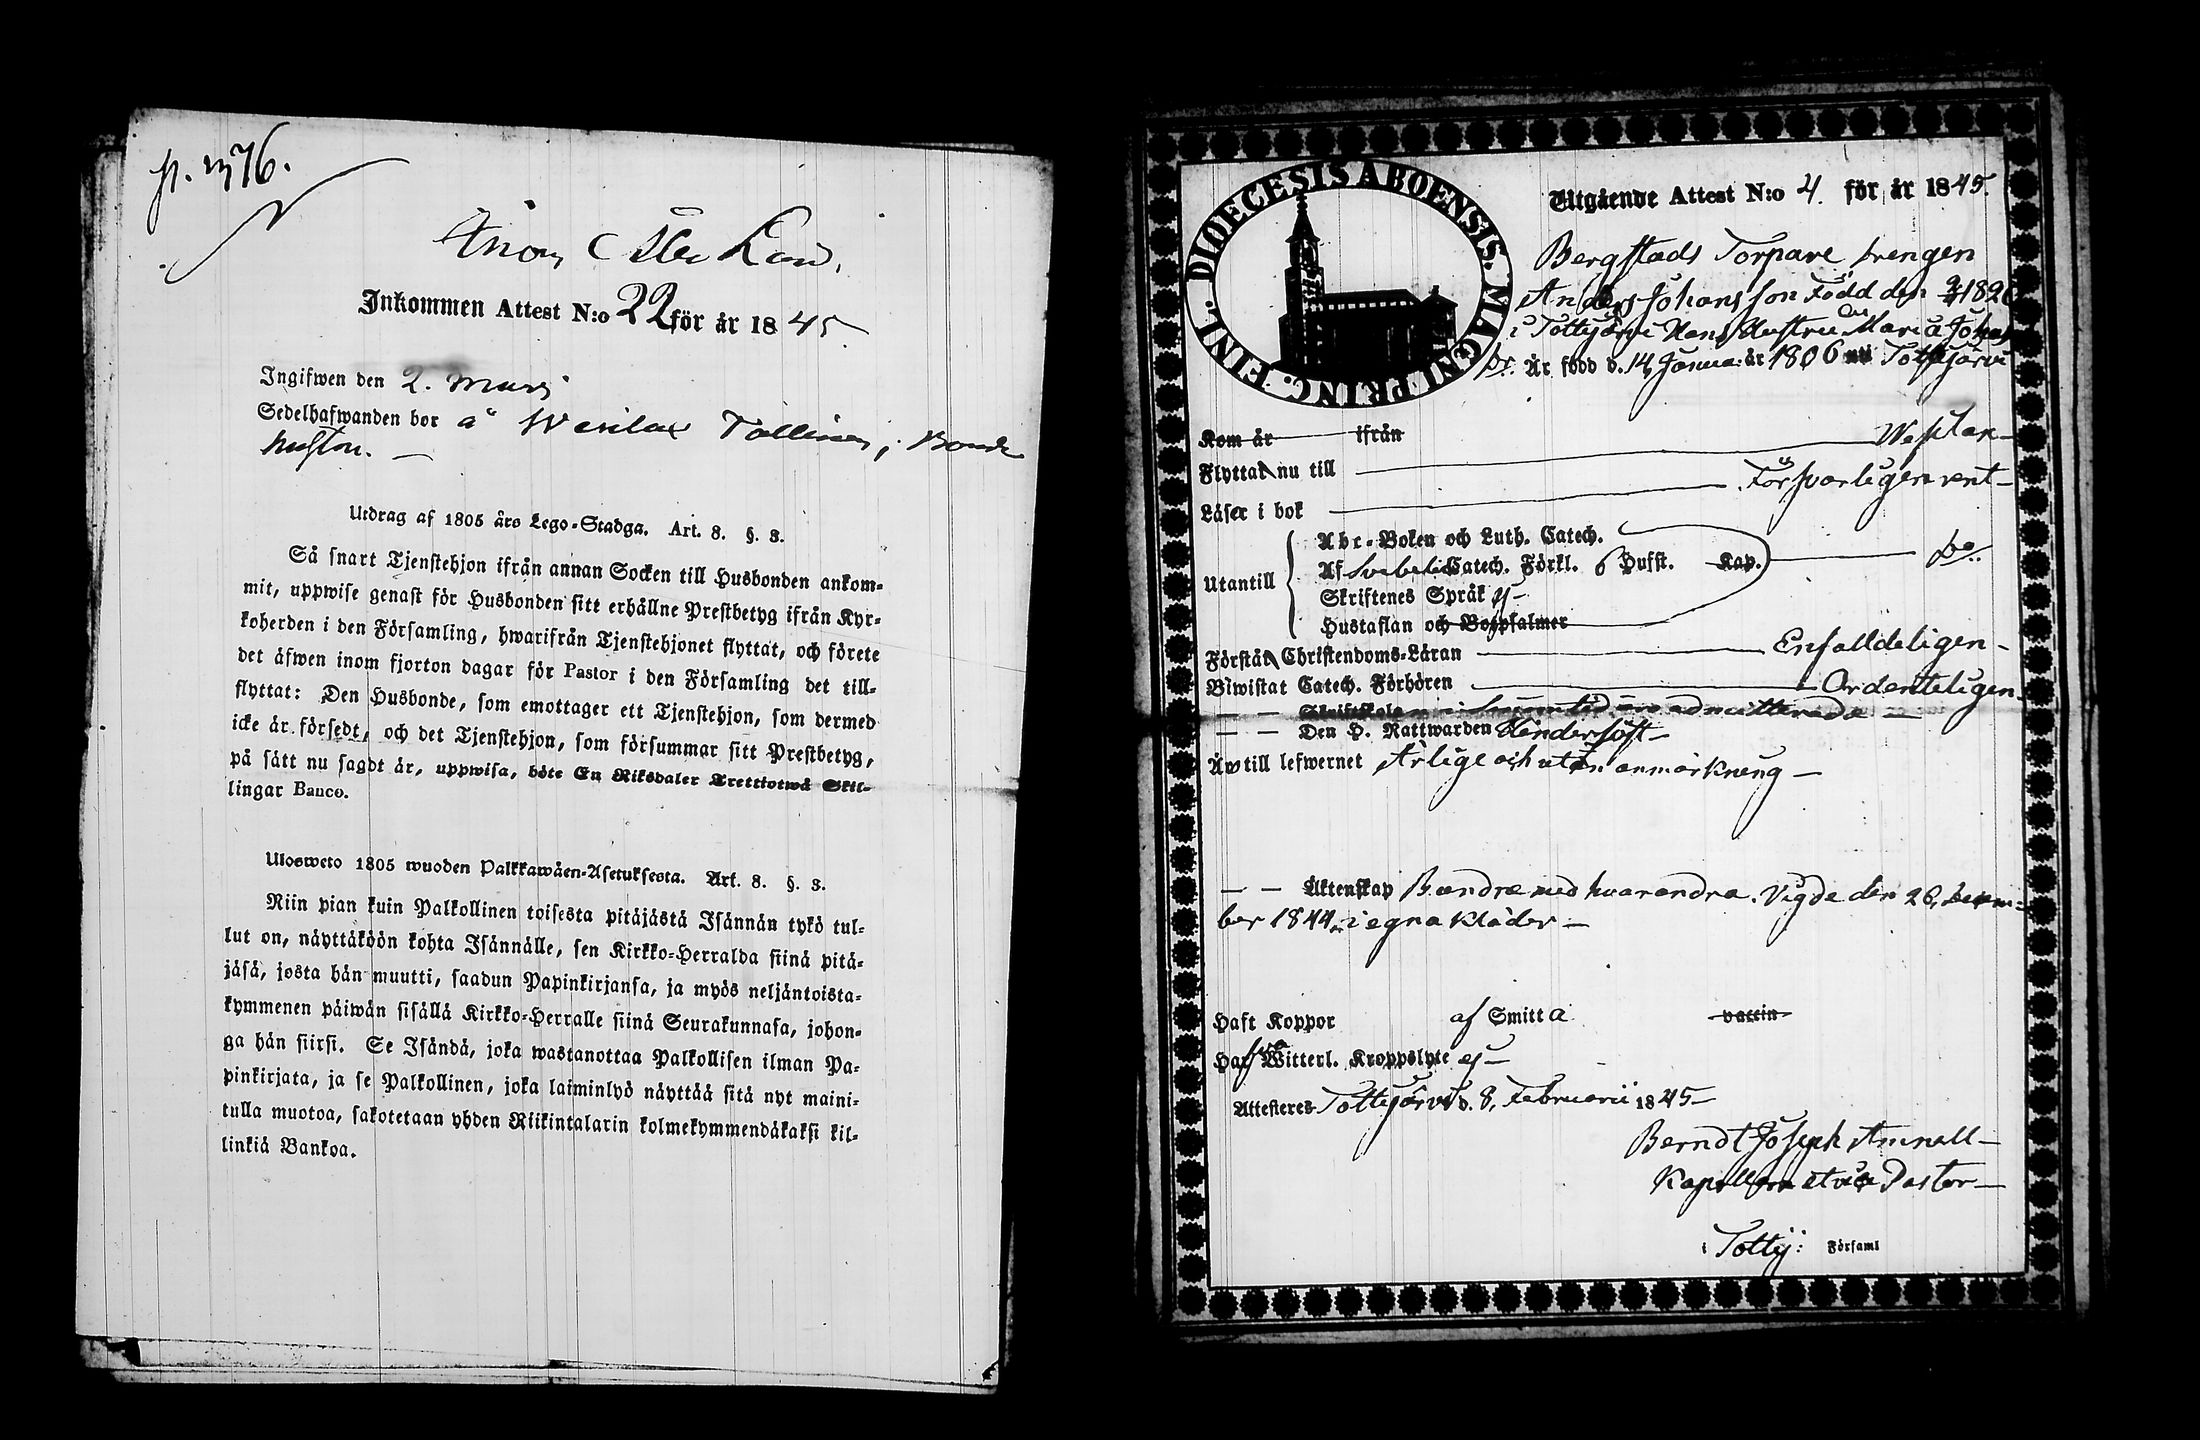 p. 376.
Inkommen Attest N:o 22 för år 1845
Ingifwen den 2. Marsj
Sedelhafwanden bor å Tallinen, Bonde
huston.
Utdrag af 1805 års Lego-Stadga. Art. 8. §. 3.
Så snart Tjenstehjon ifrån annan Socken till Husbonden ankom-
mit, uppwise genast för Husbonden sitt erhållne Prestbetyg ifrån Kyr-
koherden i den Församling, hwarifrån Tjenstehjonet flyttat, och förete
det äfwen inom fjorton dagar för Pastor i den Församling det till-
flyttat: Den Husbonde, som emottager ett Tjenstehjon, som dermed
icke är försedt, och det Tjenstehjon, som försummar sitt Prestbetyg,
på sätt nu sagdt är, uppwisa, böte En Riksdaler Trettiotwå Skil-
lingar Banco.
Ulosweto 1805 wuoden Palkkawäen-Asetuksesta. Art. 8. §. 3.
Niin pian kuin Palkollinen toisesta pitäjästä Isännän tykö tul-
lut on, näyttäköön kohta Isännälle, sen Kirkko-Herralda siinä pitä-
jäsä, josta hän muutti, saadun Papinkirjansa, ja myös neljäntoista-
kymmenen päiwän sisällä Kirkko-Herralle siinä Seurakunnasa, johon-
ga hän siirsi. Se Isändä, joka wastanottaa Palkollisen ilman Pa-
pinkirjata, ja se Palkollinen, joka laiminlyö näyttää sitä nyt maini-
tulla muotoa, sakotetaan yhden Riikintalarin kolmekymmendäkaksi kil-
linkiä Bankoa.
FINL. DIOECESIS ABOENSIS. MAGNI PRINC.
Utgående Attest N:o 4. för år 1845.
Bergstads Torpare drengen
Anders Johansson Född den 1820
i Tottijärvi Hans Hustru Maria Johans
dr. Är född d. 14 Janua: år 1806 uti Tottijärvi
Kom år ifrån
Flyttat nu till Westlax
Läser i bok Försvarligen rent
Utantill
Abc-Boken och Luth. Catech.
Af Svebelii Catech. Förkl. 6 Hufst. Kap. Do.
Skriftenes Språk ej
Hustaflan och Botpsalmer
Förstår Christendoms-Läran Enfalldeligen
Biwistat Catech. Förhören Ordenteligen
— — Skriftskolan admitterade
— — Den H. Nattwarden
Är till lefwernet Ärlige och utan anmärkning
— — Äktenskap Bundne med hvarandra. Vigde den 26, Decem-
ber 1844, i egna kläder
Haft Koppor af Smitta vaccin
Hafva Witterl. Kroppslyte ej
Attesteres Tottijärvi d. 8, Februarii 1845
Berndt Joseph Amnell
Kapellan Pastor
i Tottij: Församl